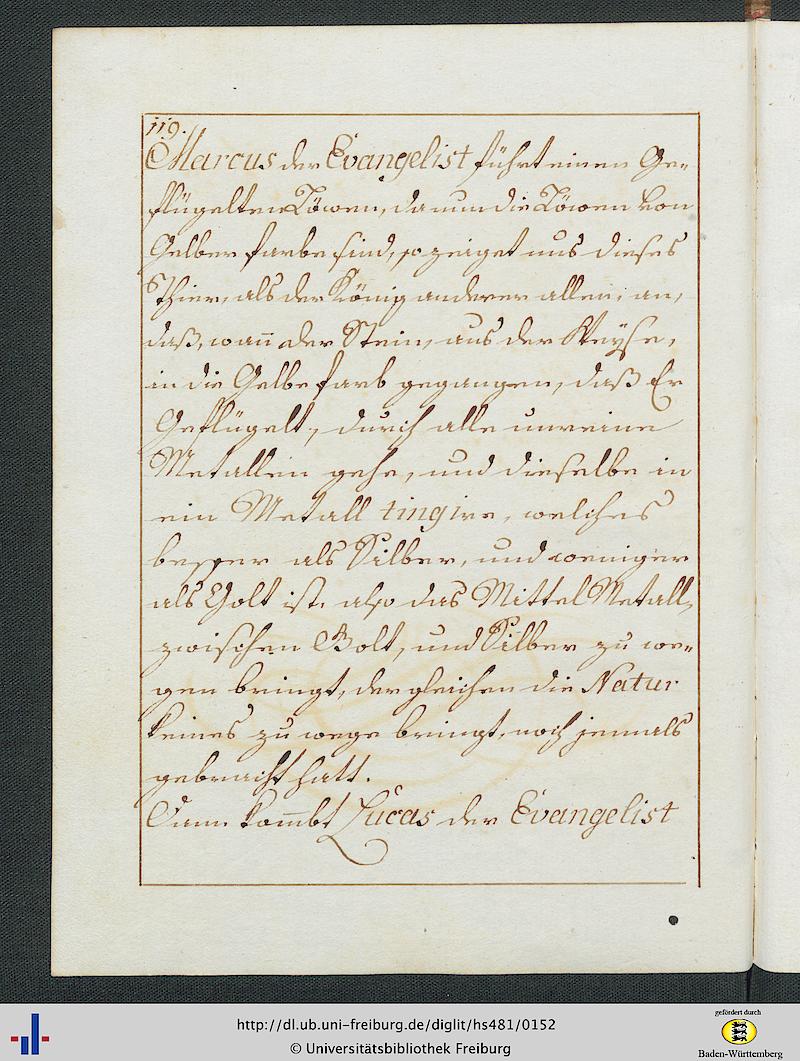 119.
Marcus der Evangelist führt einen Ge-
flügelten Löwen, da nun die Löwen von
Gelber farbe sind, so zeiget uns dieses
Thier, als der König anderer allen, an,
daß, wann der Stein, aus der Weyse,
in die Gelbe farb gegangen, daß Er
Geflügelt, durch alle unreine
Metallen gehe, und dieselbe in
ein Metall tingire, welches
besser als Silber, und weniger
als Golt ist. also das Mittel Metall,
zwischen Golt, und Silber zu we-
gen bringt, dergleichen die Natur
keines zu wege bringt, noch jemals
gebracht hatt.
Dann kombt Lucas der Evangelist
http://dl.ub.uni-freiburg.de/diglit/hs481/0152
© Universitätsbibliothek Freiburg
gefördert durch
Baden-Württemberg